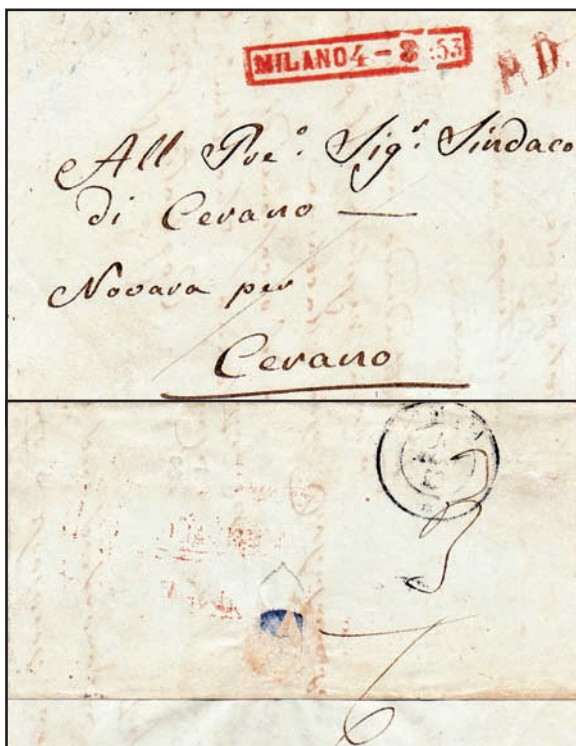 MILANO 4 - 3 53
P. D.
All Pre.º Sigʳ. Sindaco
di Cerano —
Novara per
Cerano